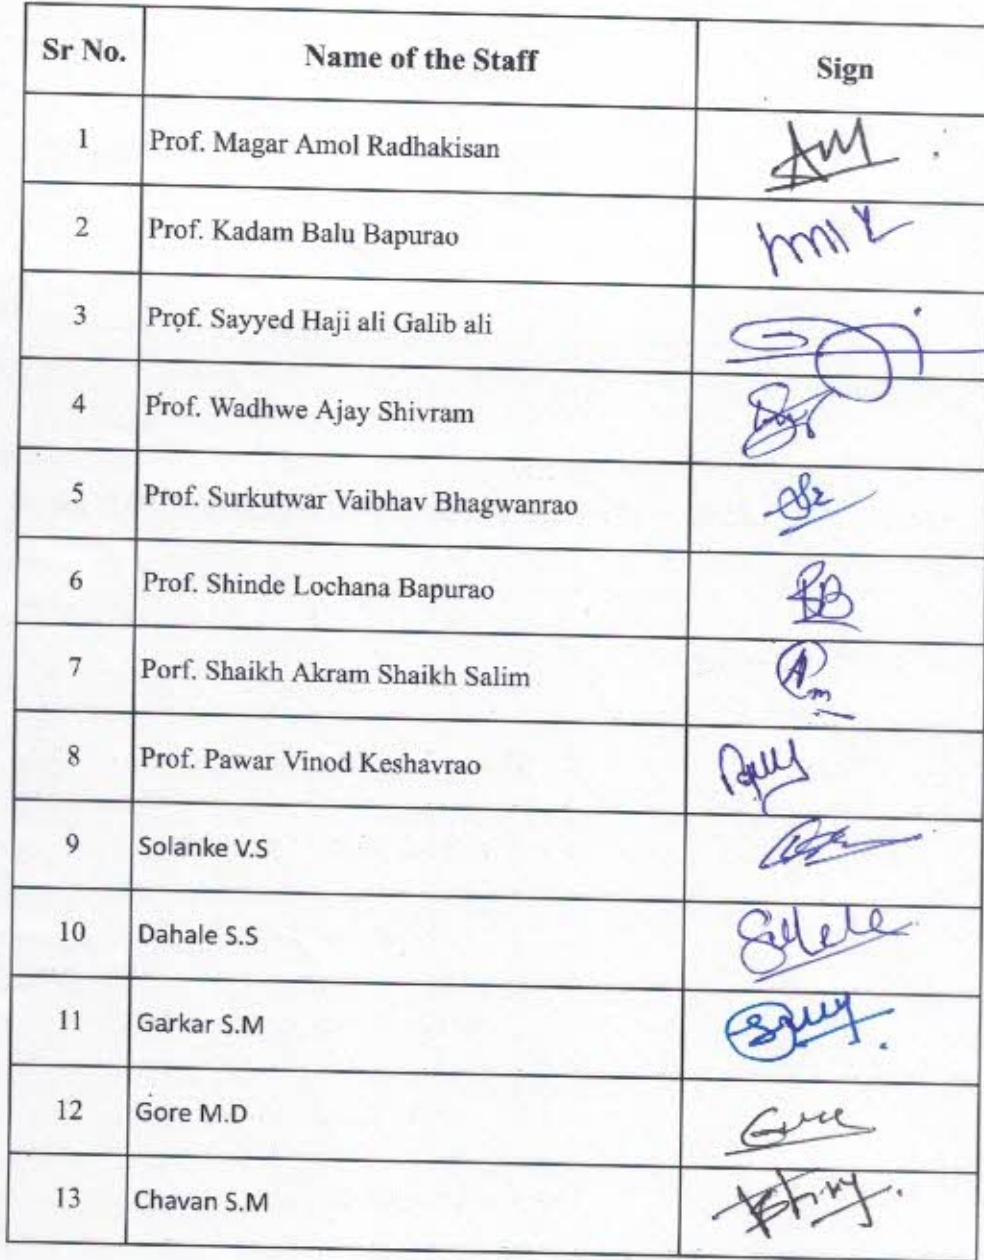 Sr No. Name of the Staff Sign
1 Prof. Magar Amol Radhakisan
2 Prof. Kadam Balu Bapurao
3 Prof. Sayyed Haji ali Galib ali
4 Prof. Wadhwe Ajay Shivram
5 Prof. Surkutwar Vaibhav Bhagwanrao
6 Prof. Shinde Lochana Bapurao
7 Porf. Shaikh Akram Shaikh Salim
8 Prof. Pawar Vinod Keshavrao
9 Solanke V.S
10 Dahale S.S
11 Garkar S.M
12 Gore M.D
13 Chavan S.M